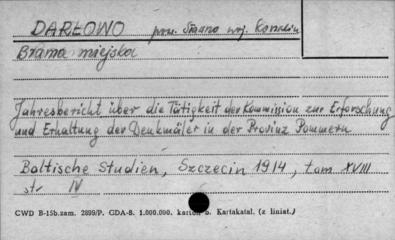 DARŁOWO pow. Sławno woj. Koszalin
Brama miejska
Jahresbericht über die Tätigkeit der Kommission zur Erforschung
und Erhaltung der Denkmäler in der Provinz Pommern
Baltische Studien, Szczecin 1914, tom XVIII
str IV
CWD B-15b.zam. 2899/P. GDA-8. 1.000.000. karton b. Kartakatal. (z liniat.)